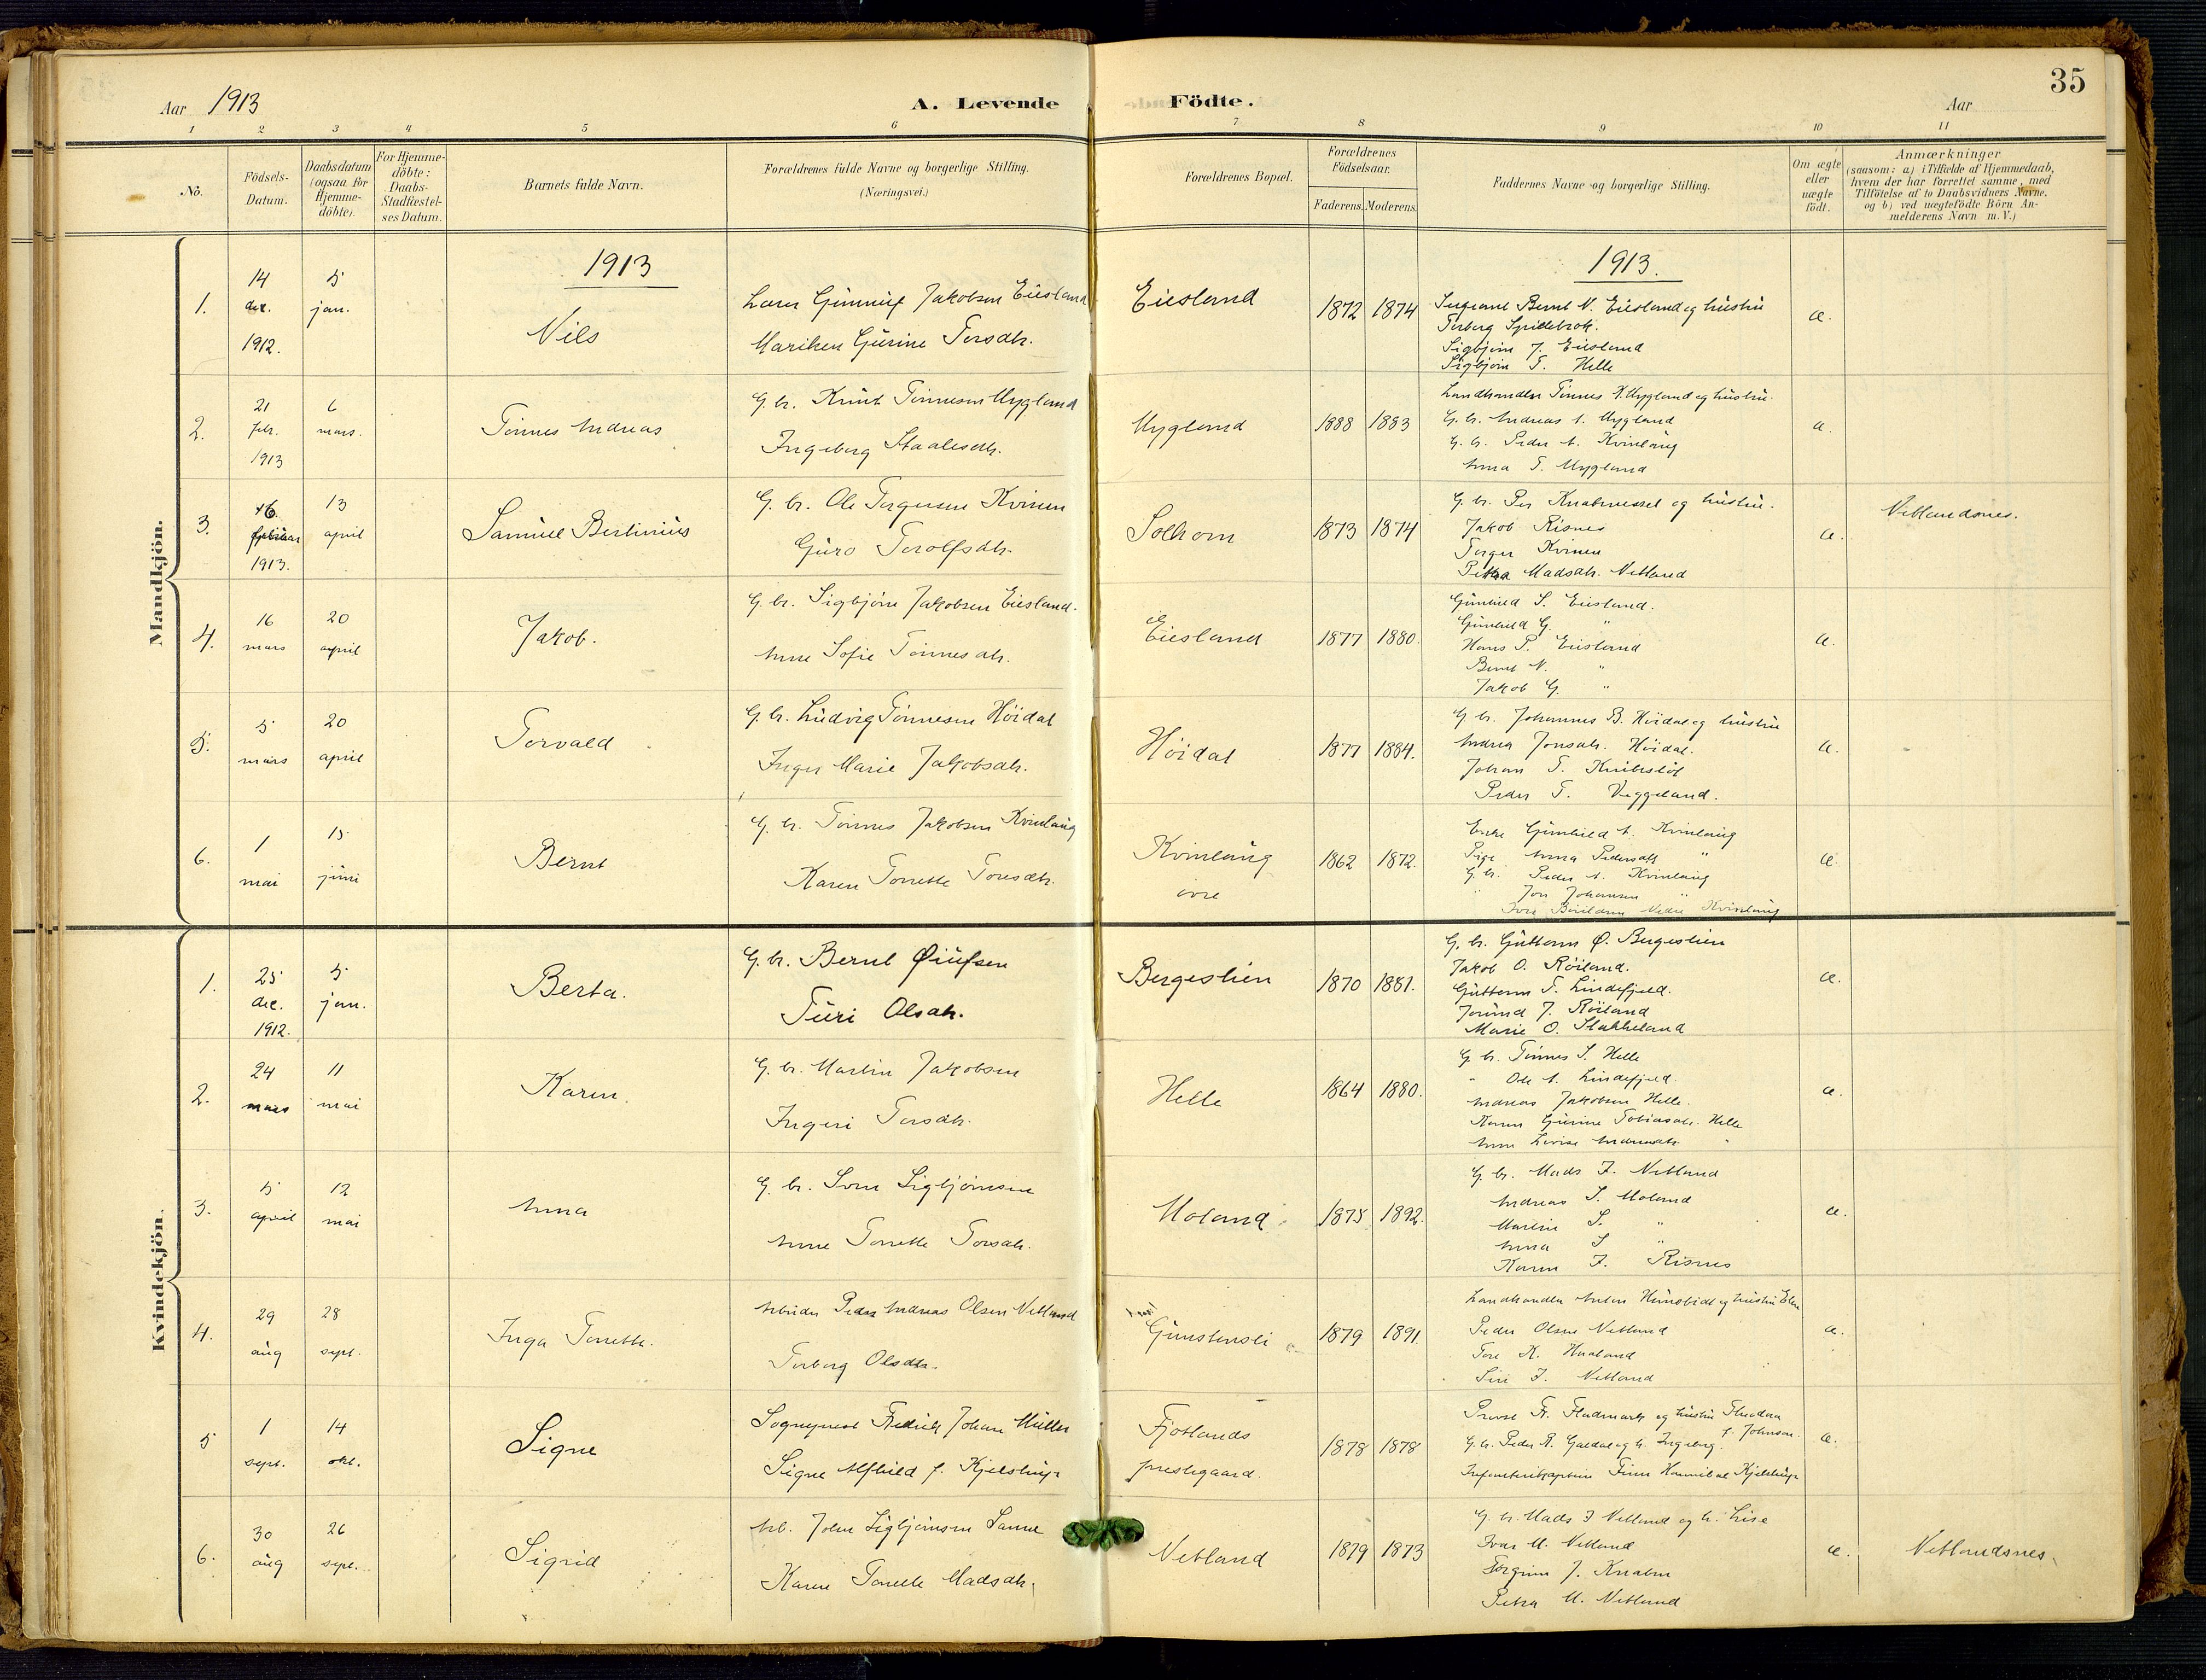 35
Aar 1913 A. Levende Födte. Aar
1 2 3 4 5 6 7 8 9 10 11
No.
Födsels-
Datum.
Daabsdatum
(ogsaa for
Hjemme-
döbte).
For Hjemme-
döbte:
Daabs-
Stadfæstel-
ses Datum.
Barnets fulde Navn.
Forældrenes fulde Navne og borgerlige Stilling.
(Næringsvei.)
Forældrenes Bopæl.
Forældrenes
Födselsaar.
Faderens. Moderens.
Faddernes Navne og borgerlige Stilling.
Om ægte
eller
uægte
födt.
Anmærkninger
(saasom: a) i Tilfælde af Hjemmedaab,
hvem der har forrettet samme, med
Tilföielse af to Daabsvidners Navne.
og b) ved uægtefödte Börn An-
melderens Navn m. V.)
Mandkjön.
1913
1913.
1.
14 dec. 1912.
5 jan.
Nils
Lærer Gunnuf Jakobsen Eiesland
Mariken Gurine Torsdtr.
Eiesland
1872 1874
Bernt N. Eiesland og hustru
Torborg
Sigbjørn J. Eiesland
Sigbjørn T. Helle
æ.
2.
21 febr. 1913
6 mars.
Tønnes Andreas
G. br. Knut Tønnesen Mygland
Ingeborg Staalesdtr.
Mygland
1888 1883
Landhandler Tønnes K. Mygland og hustru.
G. br. Andreas A. Mygland
G. br. Peder A. Kvinlaug
Anna T. Mygland
æ.
3.
16. februar 1913.
13 april
Samuel Bertinius
G. br. Ole Torgersen Kvinen
Guro Torolfsdtr.
Solhom
1873 1874
G. br. Per Knabenesset og hustru.
Jakob Risnes
Torger Kvinen
Petra Madsdtr. Netland
æ.
Netlandsnes.
4.
16 mars
20 april
Jakob.
G. br. Sigbjørn Jakobsen Eiesland.
Anne Sofie Tønnesdtr.
Eiesland
1877 1880.
Gunhild S. Eiesland.
Gunhild G. "
Hans P. Eiesland
Bernt N. "
Jakob G. "
æ.
5.
5 mars
20 april
Torvald
G. br. Ludvig Tønnesen Høidal
Inger Marie Jakobsdtr.
Høidal
1877 1884.
G. br. Johannes B. Høidal og hustru
Andrea Jonsdtr. Høidal.
Johan T.
Peder T. Veggeland.
æ.
6.
1 mai
15 juni
Bernt
G. br. Tønnes Jakobsen Kvinlaug
Karen Tonette Toresdtr.
Kvinlaug
øvre
1862 1872.
Enke Gunhild A. Kvinlaug
Pige Anna Pedersdtr "
G. br. Peder A. Kvinlaug
" Jon Johansen "
Nedre Kvinlaug
æ.
Kvindekjön.
1.
25 dec. 1912.
5 jan.
Berta.
G. br. Bernt Øiufsen
Turi Olsdtr.
Bergeslien
1870 1881.
G. br. Guttorm Ø. Bergeslien
Jakob O. Røiland.
Guttorm T. Lindefjeld.
Jorund J. Røiland
Marie O. Stakkeland
æ.
2.
24 mars
11 mai
Karen.
G. br. Martin Jakobsen
Ingeri Torsdtr.
Helle
1864 1880.
G. br. Tønnes S. Helle
" Ole A. Lindefjeld.
Andreas Jakobsen Helle.
Karen Gurine Tobiasdtr. Helle
Anne Lovise Andreasdtr. "
æ.
3.
5 april
12 mai
Anna
G. br. Sven Sigbjørnsen
Anne Tonette Torsdtr.
Moland.
1875 1892.
G. br. Mads I. Netland
Andreas S. Moland
Martin S. "
Anna S "
Karen I. Risnes
æ.
4.
29 aug
28 sept.
Inga Tonette.
Arbeider Peder Andreas Olsen Netland
Torborg Olsdtr.
Gunstensli
1879 1891.
Landhandler Anton Hunsbedt og hustru
Peder Olsen Netland
Tore K. Haaland
Siri I. Netland
æ.
5
1 sept.
14 okt.
Signe
Sogneprest Fredrik Johan Müller
Signe Alfhild f. Kjelstrup
Fjotlands
prestegaard.
1878 1878
Provst Fr. Fladmark og hustru Theodora
f. Johnson.
G. br. Peder R. Gaddal og h. Ingeborg.
Infanterikaptein Finn Hannibal Kjelstrup
æ.
6.
30 aug
26 sept.
Sigrid
Arb. John Sigbjørnsen Sanne
Karen Tonette Madsdtr.
Netland
1879 1873
G. br. Mads I Netland og h. Lise
Ivar M. Netland
Torgrim J. Knaben
Petra M. Netland
æ.
Netlandsnes.